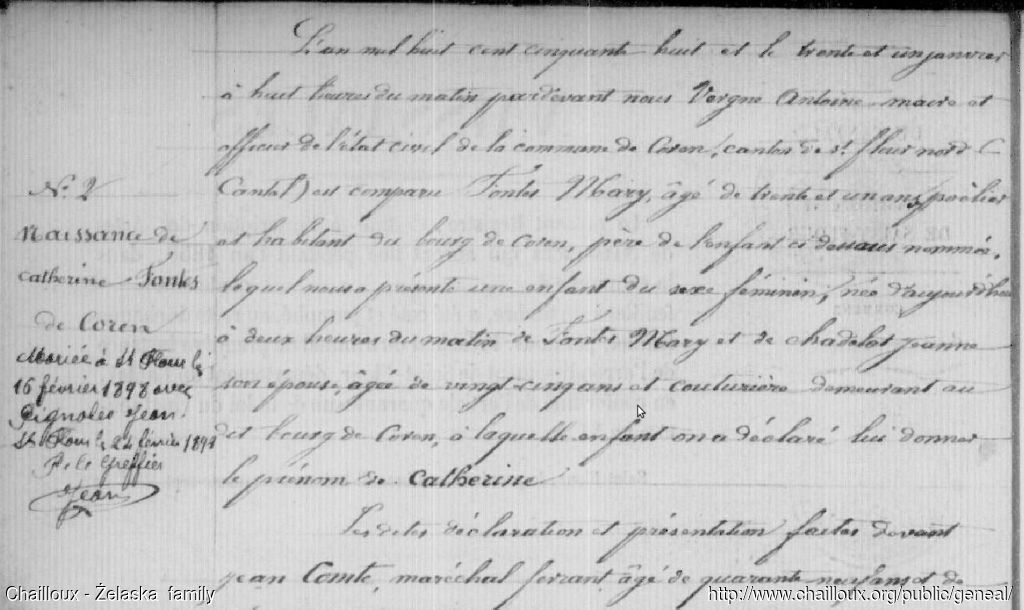 N.º 2
Naissance de
catherine Fontes
de Coren
Mariée à St Flour le
16 février 1898 avec
Pignolès Jean
St Flour le 24 février 1898
P. le Greffier
Jean
L'an mil huit cent cinquante huit et le trente et un janvier
à huit heures du matin pardevant nous Vergne Antoine maire et
officier de l'état civil de la commune de Coren, canton de St flour nord (
Cantal) est comparu Fontes Mary, âgé de trente et un ans, poèlier
et habitant du bourg de Coren, père de l'enfant ci dessous nommée,
lequel nous a présenté une enfant du sexe féminin, née d'aujourd'hui
à deux heures du matin de Fontes Mary et de chadelat jeanne
son épouse, âgée de vingt-cinq ans et couturière demeurant au
dit bourg de Coren, à laquelle enfant on a déclaré lui donner
le prénom de Catherine
Les dites déclaration et présentation faites devant
jean Comte, maréchal ferrant, âgé de quarante neuf ans et de
Chailloux - Żelaska family
http://www.chailloux.org/public/geneal/